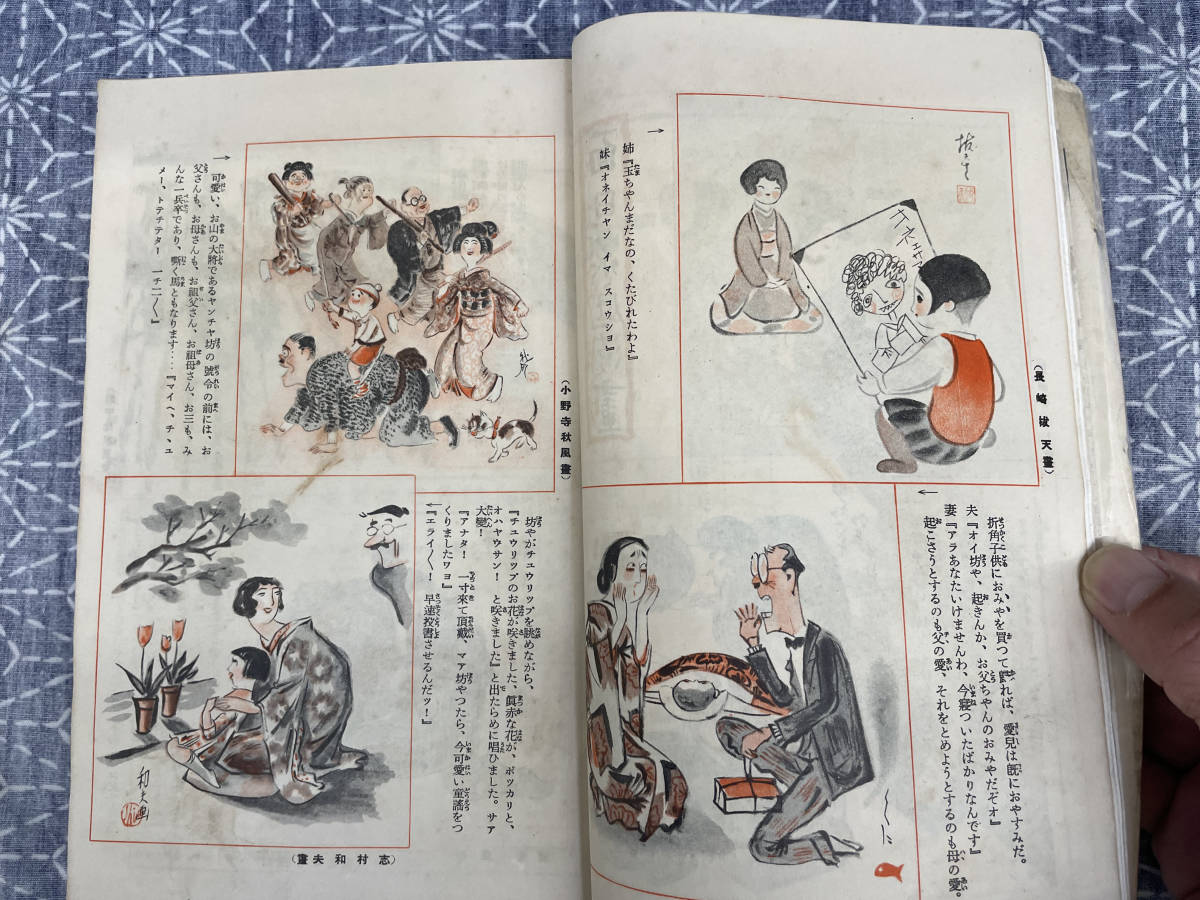 姉『玉ちゃんまだなの、くたびれたわよ』
妹『オネイチヤン イマ スコウショ』
オネエサマ
(長崎拔天畫)
折角子供におみやを買つて歸れば、愛兒は既におやすみだ。
夫『オイ坊や、起きんか、お父ちゃんのおみやだぞオ』
妻『アラあなたいけませんわ、今寢ついたばかりなんです』
起こさうとするのも父の愛、それをとめようとするのも母の愛。
くに
可愛い、お山の大將であるヤンチヤ坊の號令の前には、お
父さんも、お母さんも、お祖父さん、お祖母さん、お三も、み
んな一兵卒であり、嘶く馬ともなります…『マイヘ、チ、ユ
メー、トテチテター 一チ二一〱』
(小野寺秋風畫)
坊やがチュウリツプを眺めながら、
『チュウリツプのお花が咲きました、眞赤な花が、ポッカリと、
オハヤウサン! と咲きました』と出たらめに唱ひました。サア
大變!
『アナタ! 一寸來て頂戴、マア坊やつたら、今可愛い童謠をつ
くりましたワョ』
『エライ〱! 早速投書させるんだッ!』
和夫画
(志村和夫畫)